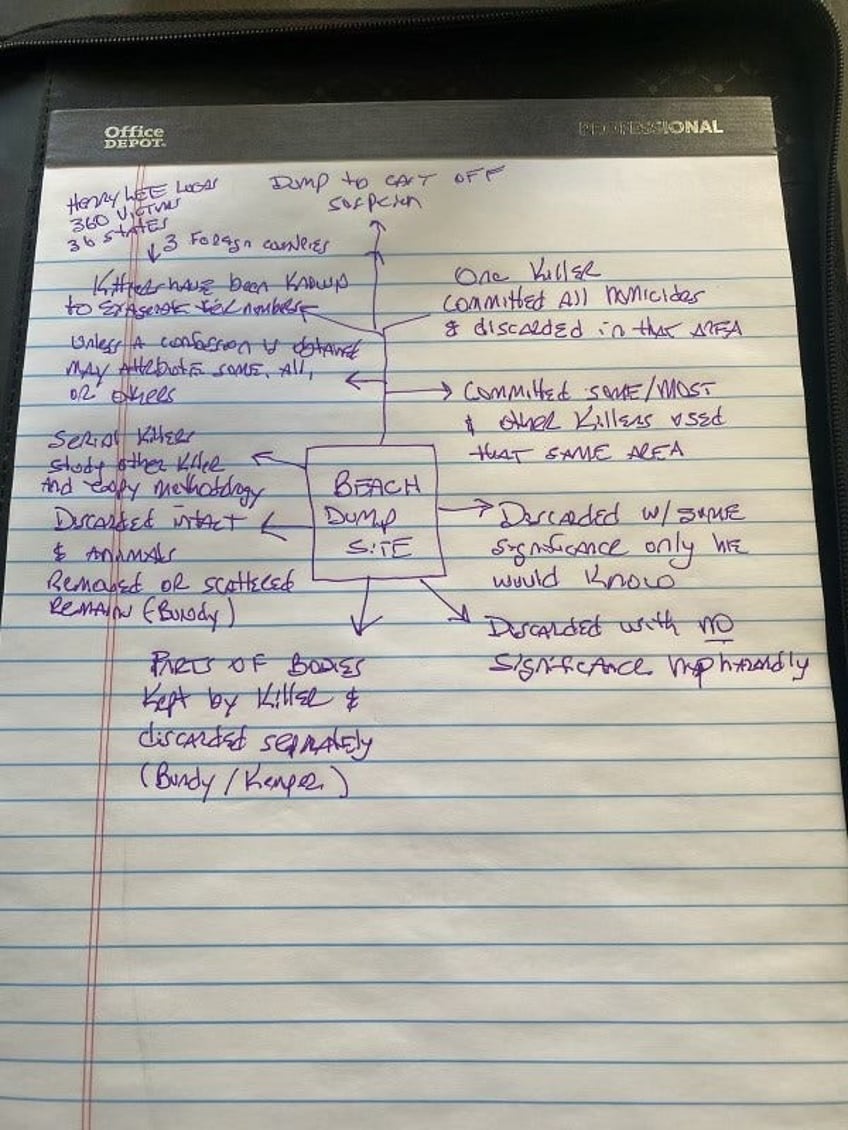 Office
DEPOT.
PROFESSIONAL
HENRY LEE LUCAS
360 VICTIMS
36 STATES
3 FOREIGN COUNTRIES
DUMP to CAST OFF
SUSPICION
Killers HAVE been KNOWN
to numbers
UNLESS A CONFESSION is obtained
MAY Attribute SOME, ALL,
OR others
ONE Killer
COMMITTED ALL HOMICIDES
& discarded in that AREA
COMMITTED SOME/MOST
& other Killers used
that SAME AREA
SERIAL Killers
study other Killer
And copy methodology
DISCARDED intact
& ANIMALS
REMOVED OR SCATTERED
REMAIN (Bundy)
BEACH
DUMP
SITE
DISCARDED W/ SOME
significance only HE
would KNOW
DISCARDED with NO
SIGNIFICANCE
PARTS OF BODIES
Kept by Killer &
discarded
(Bundy / Kemper)